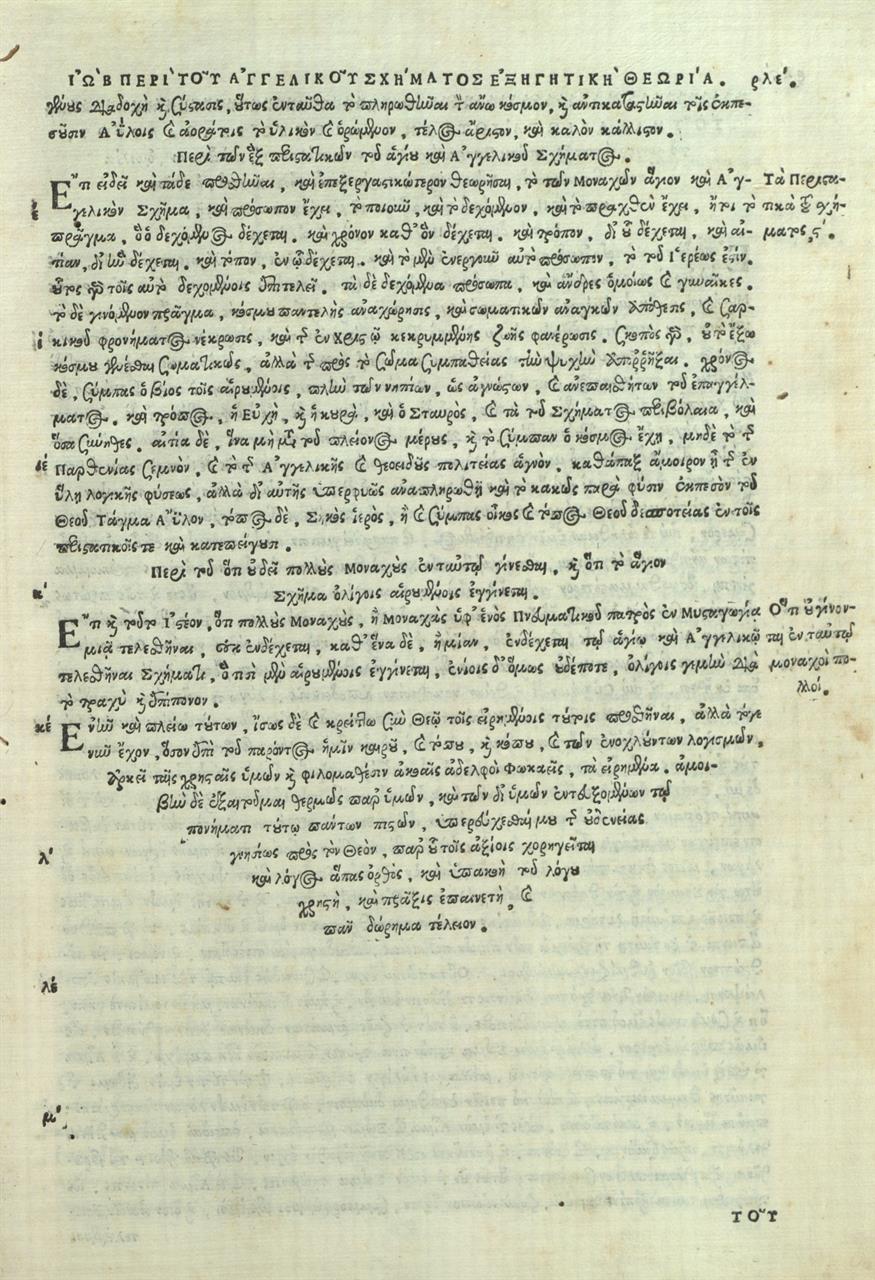 ΙΩ῀Β ΠΕΡΙ ΤΟΥ῀ ΑΓΓΕΛΙΚΟΥ῀ ΣΧΗ΄ΜΑΤΟΣ ΕΞΗΓΗΤΙΚΗ΄ ΘΕΩΡΙΑ. ρλέ.
γένους διαδοχὴ καὶ σύστασις, οὕτως ἐνταῦθα τὸ πληρωθῆναι τὸν ἄνω κόσμον, καὶ ἀντικαταστῆναι τοῖς ἐκπε-
σοῦσιν Αὕλοις καὶ ἀοράτοις τὸ ὑλικὸν καὶ ὁρώμενον, τέλος ἄριστον, καὶ καλὸν κάλλιστον.
Περὶ τῶν ἓξ περιστατικῶν τοῦ ἁγίου καὶ Ἀγγελικοῦ Σχήματος.
Ἔτι εἰδεῖ καὶ τάδε προσθεῖναι, καὶ ἐπεξεργαστικώτερον θεωρῆσαι, τὸ τῶν Μοναχῶν ἅγιον καὶ Ἀγ- Τὰ Περιστα-
ε γελικὸν Σχῆμα, καὶ πρόσωπον ἔχει, τὸ ποιοῦν, καὶ τὸ δεχόμενον, καὶ τὸ πραχθὲν ἔχει, ἤτοι τὸ τικὰ τοῦ σχή-
πρᾶγμα, ὃ ὁ δεχόμενος δέχεται. καὶ χρόνον καθ' ὃν δέχεται. καὶ τρόπον, δι' οὗ δέχεται, καὶ αἰ- ματος ϛ.
τίαν, δι' ἣν δέχεται. καὶ τόπον, ἐν ᾧ δέχεται. καὶ τὸ μὲν ἐνεργοῦν αὐτὸ πρόσωπον, τὸ τοῦ Ἱερέως ἐστίν.
οὗτος γὰρ τοῖς αὐτὸ δεχομένοις ἐπιτελεῖ. τὰ δὲ δεχόμενα πρόσωπα, καὶ ἄνδρες ὁμοίως καὶ γυναῖκες.
τὸ δὲ γινόμενον πρᾶγμα, κόσμου παντελὴς ἀναχώρησις, καὶ σωματικῶν ἀναγκῶν ἀπόθεσις, καὶ Σαρ-
ι κικοῦ φρονήματος νέκρωσις, καὶ τῆς ἐν Χριστῷ κεκρυμμένης ζωῆς φανέρωσις. Σκοπὸς γὰρ, οὐ τὸ ἔξω
κόσμου γενέσθαι Σωματικῶς, ἀλλὰ τῆς πρὸς τὸ Σῶμα Συμπαθείας τὴν ψυχὴν ἀποῤῥῆξαι. χρόνος
δὲ, Σύμπας ὁ βίος τοῖς αἱρουμένοις, πλὴν τῶν νηπίων, ὡς ἀγνώστων, καὶ ἀνεπαισθήτων τοῦ ἐπαγγέλ-
ματος. καὶ τρόπος, ἡ Εὐχὴ, καὶ ἡ κουρὰ, καὶ ὁ Σταυρὸς, καὶ τὰ τοῦ Σχήματος περιβόλαια, καὶ
ὅσα Συνήθες. αἰτία δὲ, ἵνα μὴ μετὰ τοῦ πλείονος μέρους, καὶ τὸ Σύμπαν ὁ κόσμος ἔχῃ, μηδὲ τὸ τῆς
ιέ Παρθενίας Σεμνὸν, καὶ τὸ τῆς Ἀγγελικῆς καὶ θεοειδοῦς πολιτείας ἁγνὸν, καθάπαξ ἄμοιρον ᾖ τῆς ἐν
ὕλῃ λογικῆς φύσεως, ἀλλὰ δι' αὐτῆς ὑπερφυῶς ἀναπληρωθῇ καὶ τὸ κακῶς παρὰ φύσιν ἐκπεσὸν τοῦ
Θεοῦ Τάγμα Ἄϋλον, τόπος δὲ, Σηκὸς ἱερὸς, ἢ καὶ Σύμπας οἶκος καὶ τόπος Θεοῦ δεσποτείας ἐν τοῖς
περιστατικοῖς τε καὶ κατεπείγουσι.
Περὶ τοῦ ὅτι οὐδεῖ πολλοὺς Μοναχοὺς ἐν ταὐτῷ γίνεσθαι, καὶ ὅτι τὸ ἅγιον
κ Σχῆμα ὀλίγοις αἱρουμένοις ἐγγίνεται.
Ἔτι καὶ τοῦτο Ἰστέον, ὅτι πολλοὺς Μοναχοὺς, ἢ Μοναχὰς ὑφ' ἑνὸς Πνευματικοῦ πατρὸς ἐν Μυσταγωγίᾳ Ὅτι οὐ γίνον-
μιᾷ τελεσθῆναι, οὐκ ἐνδέχεται, καθ' ἕνα δὲ, ἢ μίαν, ἐνδέχεται τῷ ἁγίῳ καὶ Ἀγγελικῷ ται ἐν ταὐτῷ
τελεσθῆναι Σχήματι, ὅ τισὶ μὲν αἱρουμένοις ἐγγίνεται, ἐνίοις δ' ὅμως οὐδέποτε, ὀλίγοις γεμὴν διὰ μοναχοὶ πο-
τὸ τραχὺ καὶ ἐπίπονον. λλοί.
κέ Ἐνῆν καὶ πλείω τούτων, ἴσως δὲ καὶ κρείττω Σὺν Θεῷ τοῖς εἰρημένοις τούτοις προσθῆναι, ἀλλὰ τόγε
νῦν ἔχον, ὅσον ἐπὶ τοῦ παρόντος ἡμῖν καιροῦ, καὶ τόπου, καὶ κόπου, καὶ τῶν ἐνοχλούντων λογισμῶν,
ἀρκεῖ ταῖς χρησταῖς ὑμῶν καὶ φιλομαθέσιν ἀκοαῖς ἀδελφοὶ Φωκαεῖς, τὰ εἰρημένα. ἀμοι-
βὴν δὲ ἐξαιτοῦμαι θερμῶς παρ' ὑμῶν, καὶ τῶν δι' ὑμῶν ἐντευξομένων τῷ
πονήματι τούτῳ πάντων πιστῶν, ὑπερεύχεσθαί μου τῆς οὐθενείας
λ γνησίως πρὸς τὸν Θεὸν, παρ' οὗ τοῖς ἀξίοις χορηγεῖται
καὶ λόγος ἅπας ὀρθὸς, καὶ ὑπακοὴ τοῦ λόγου
χρηστὴ, καὶ πρᾶξις ἐπαινετὴ, καὶ
πᾶν δώρημα τέλειον.
λέ
μ
ΤΟΥ῀